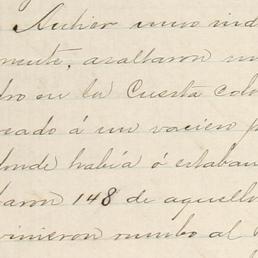 Antier unos ind
mente, asaltaron un
dro en la Cuesta colo
eado á un vaciero p
donde había ó estaban
baron 148 de aquello
vinieron rumbo al